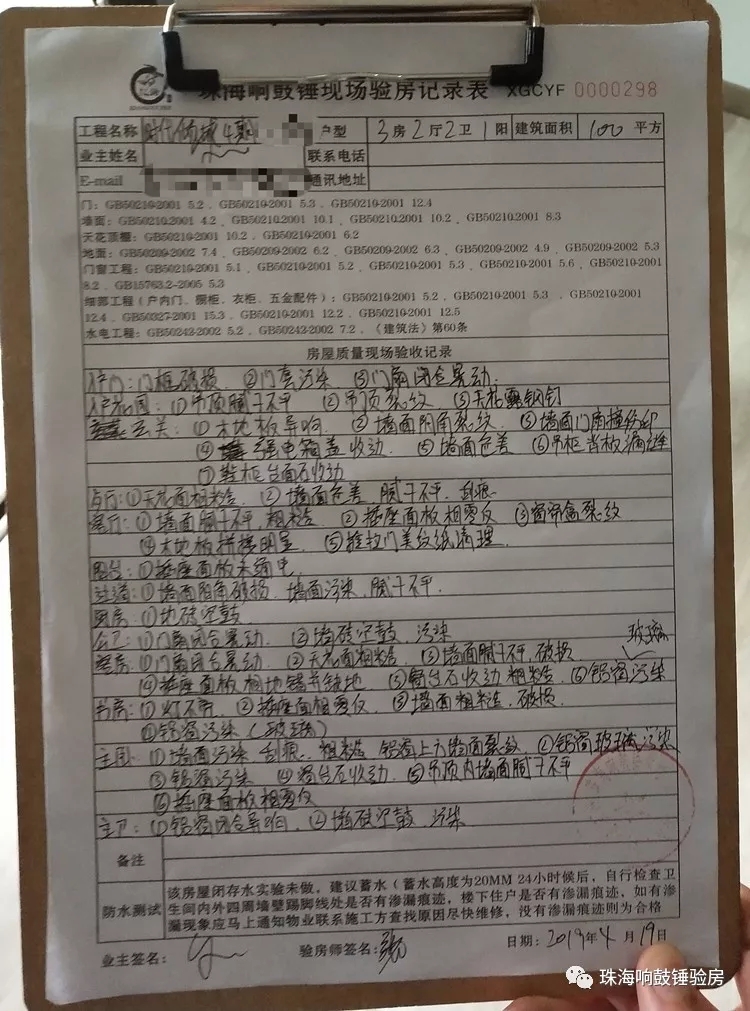 珠海响鼓锤现场验房记录表 XGCYF 0000298
工程名称 时代倾城 户型 3房2厅2卫1阳 建筑面积 100 平方
业主姓名 联系电话
E-mail 通讯地址
门：GB50210-2001 5.2 、GB50210-2001 5.3 、GB50210-2001 12.4
墙面：GB50210-2001 4.2 、GB50210-2001 10.1 、GB50210-2001 10.2 、GB50210-2001 8.3
天花顶棚：GB50210-2001 10.2 、GB50210-2001 6.2
地面：GB50209-2002 7.4 、GB50209-2002 6.2 、GB50209-2002 6.3 、GB50209-2002 4.9 、GB50209-2002 5.3
门窗工程：GB50210-2001 5.1 、GB50210-2001 5.2 、GB50210-2001 5.3 、GB50210-2001 5.6 、GB50210-2001
8.2 、GB15763.2-2005 5.3
细部工程（户内门、橱柜、衣柜、五金配件）：GB50210-2001 5.2 、GB50210-2001 5.3 、GB50210-2001
12.4 、GB50327-2001 15.3 、GB50210-2001 12.2 、GB50210-2001 12.5
水电工程：GB50242-2002 5.2 、GB50242-2002 7.2 、《建筑法》第60条
房屋质量现场验收记录
入户门：门框破损 ②门套污染 ③门扇闭合晃动
入户花园：①吊顶腻子不平 ②吊顶裂纹 ③天花露钢钉
玄关：①木地板异响 ②墙面阴角裂纹 ③墙面门角撞纱印
④强电箱盖收动 ⑤墙面色差 ⑥吊柜背板漏缝
⑦鞋柜台面石收动
①天花面粗糙 ②墙面色差、腻子不平、刮痕
客厅：①墙面腻子不平，粗糙 ②插座面板相零反 ③窗帘盒裂纹
④木地板拼接明显 ⑤推拉门美纹纸清理
阳台：①插座面板未通电
过道：①墙面阴角破损、墙面污染，腻子不平
厨房：①地砖空鼓
公卫：①门扇闭合晃动 ②墙砖空鼓、污染 玻璃
①门扇闭合晃动 ②天花面粗糙 ③墙面腻子不平，破损
④插座面板相地错并缺地 ⑤窗台石收动 粗糙 ⑥铝窗污染
书房：①灯不亮 ②插座面相零反 ③墙面粗糙，破损
④铝窗污染（玻璃）
主卧：①墙面污染 刮痕 粗糙 铝窗上方墙面裂纹 ②铝窗玻璃污染
③铝窗污染 ④窗台石收动 ⑤吊顶内墙面腻子不平
⑥插座面板相零反
主卫：①铝窗闭合异响 ②墙砖空鼓 污染
备注
防水测试
该房屋闭存水实验未做，建议蓄水（蓄水高度为20MM 24小时候后，自行检查卫
生间内外四周墙壁踢脚线处是否有渗漏痕迹，楼下住户是否有渗漏痕迹，如有渗
漏现象应马上通知物业联系施工方查找原因尽快维修，没有渗漏痕迹则为合格
业主签名： 验房师签名： 日期：2019年4月19日
珠海响鼓锤验房